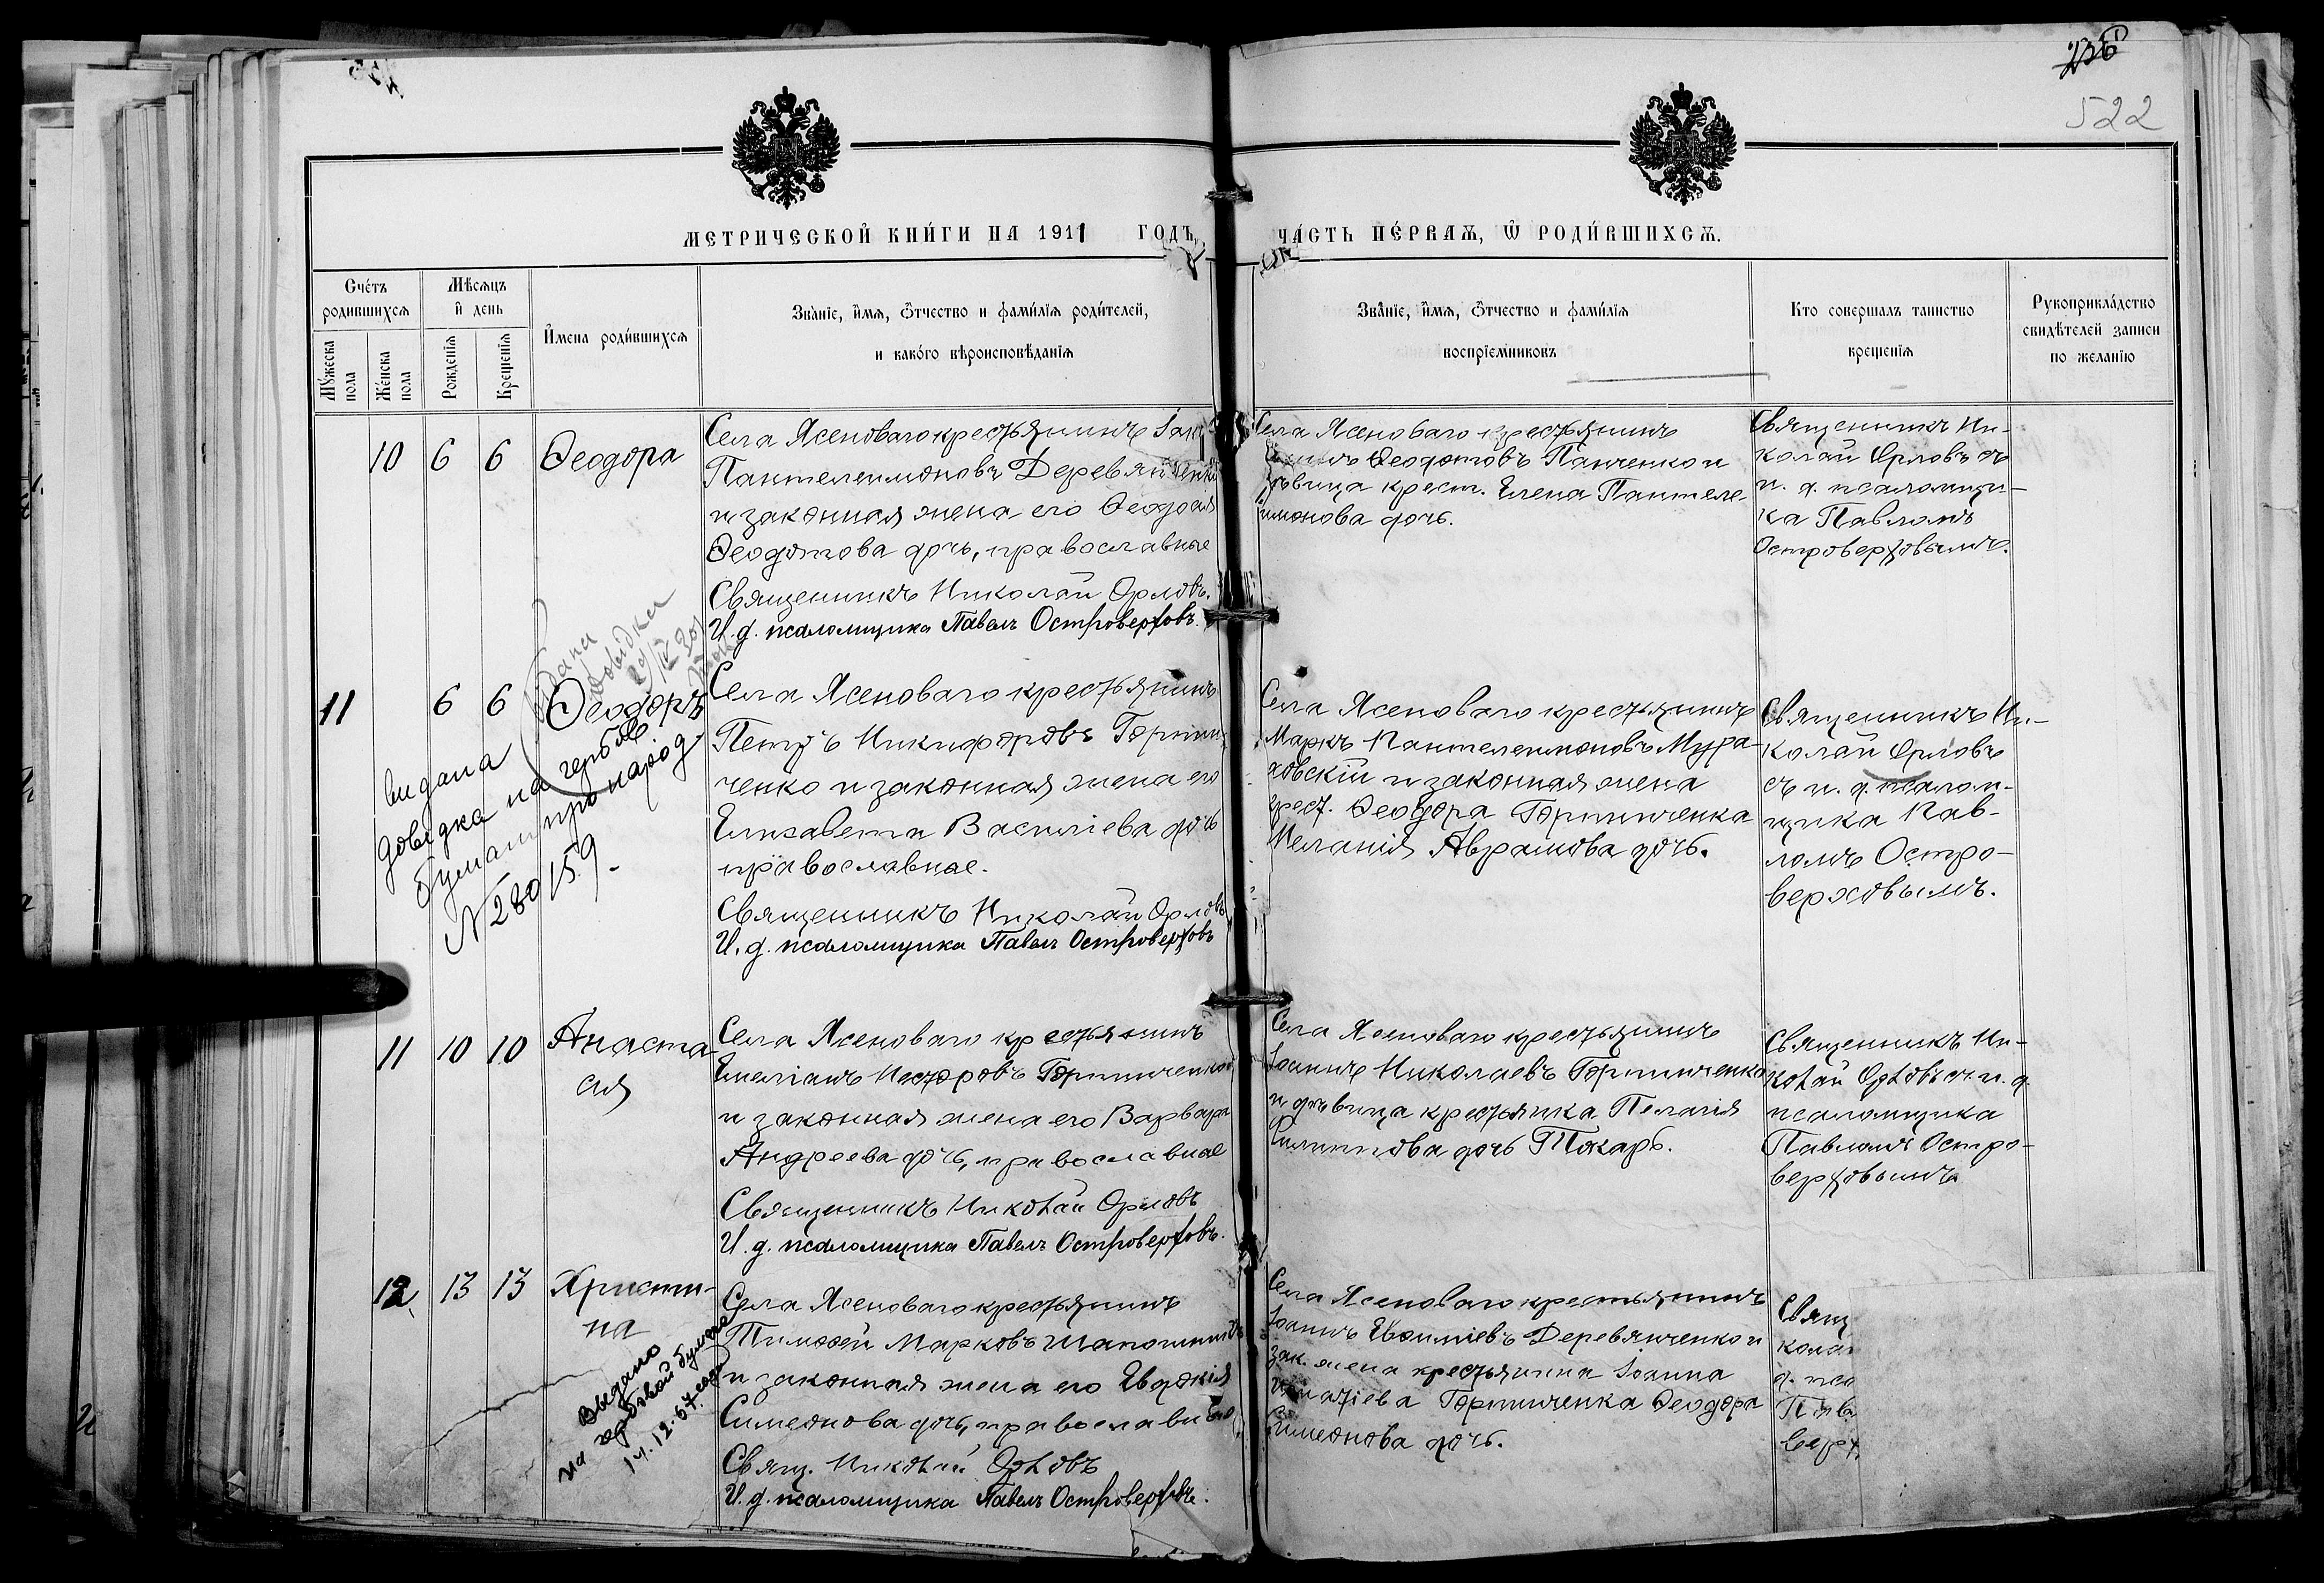 522
МЕТРИЧЕСКОЙ КНИГИ НА 1911 ГОДЪ,
ЧАСТЬ ПЕРВАЯ, Ѡ РОДИВШИХСЯ.
Счетъ родившихся
Мужеска пола
Женска пола
Мѣсяцъ и день
Рожденія
Крещенія
Имена родившихся
Званіе, имя, отчество и фамилія родителей,
и какого вѣроисповѣданія
Званіе, имя, отчество и фамилія
воспріемниковъ
Кто совершалъ таинство
крещенія
Рукоприкладство
свидѣтелей записи
по желанію
10 6 6 Ѳеодора
Села Ясеноваго крестьянинъ
Пантелеимоновъ Деревянченко
и законная жена его Ѳеодосія
Ѳеодотова дочь, православные
Священникъ Николай Орловъ.
И. д. псаломщика Павелъ Островерховъ.
Села Ясеноваго крестьянинъ
Ѳеодотовъ Панченко и
дѣвица крест. Елена Пантеле-
имонова дочь.
Священникъ Ни-
колай Орловъ съ
и. д. псаломщи-
ка Павломъ
Островерховымъ.
11 6 6 Ѳеодоръ
видана
довідка
29/IV 30
видана
довідка на гербов.
бумаги про народ.
N 280 15.9.
Села Ясеноваго крестьянинъ
Петръ Никифоровъ Горпин-
ченко и законная жена его
Елизавета Василіева дочь
православные.
Священникъ Николай Орловъ
И. д. псаломщика Павелъ Островерховъ
Села Ясеноваго крестьянинъ
Маркъ Пантелеимоновъ Мура-
ховскій и законная жена
крест. Ѳеодора Горпинченка
Меланія Авраамова дочь.
Священникъ Ни-
колай Орловъ
съ и. д. псалом-
щика Пав-
ломъ Остро-
верховымъ.
11 10 10 Анаста-
сія
Села Ясеноваго крестьянинъ
Емеліанъ Несторовъ Горпинченко
и законная жена его Варвара
Андреева дочь, православные
Священникъ Николай Орловъ
И. д. псаломщика Павелъ Островерховъ.
Села Ясеноваго крестьянинъ
Іоаннъ Николаевъ Горпинченко
и дѣвица крестьянка Пелагія
Филиппова дочь Токарь.
Священникъ Ни-
колай Орловъ съ и. д.
псаломщика
Павломъ Остро-
верховымъ
12 13 13 Христи-
на
Выдано
на гербовой бумаге
14.12.67. года
Села Ясеноваго крестьянинъ
Тимоѳей Марковъ
и законная жена его Евдокія
Симеонова дочь, православные
Свящ. Николай Орловъ
И. д. псаломщика Павелъ Островерховъ.
Села Ясеноваго крестьянинъ
Іоаннъ Евѳиміевъ Деревянченко и
зак. жена крестьянина Іоанна
Игнатіева Горпинченка Ѳеодора
Симеонова дочь.
Свящ
кола
д. пса
Пав
верх